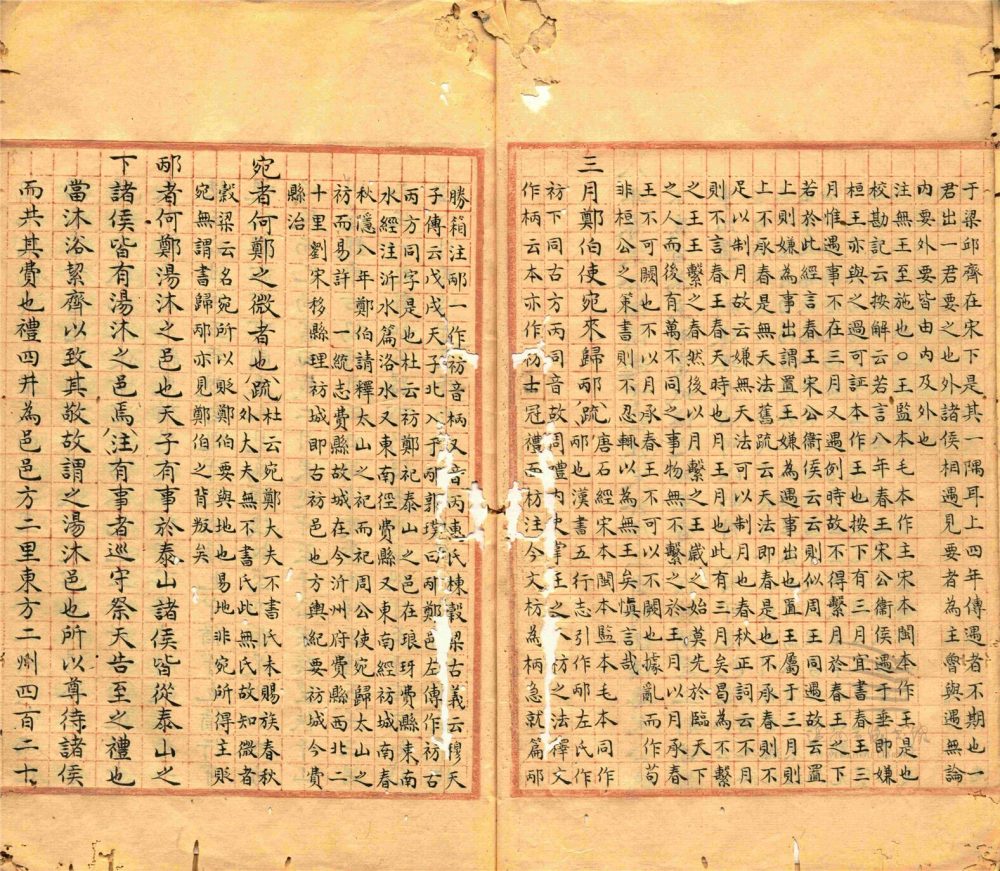 于梁邱齊在宋下是其隅耳上四年傳遇者不期也一
君出一君要之也外諸侯相遇見要者為主曾與遇無論
內要外要皆由內及外也
注無王至施也○王監本毛本作主宋本閩本作王是也
校勘記云按解云若言八年春王宋公衞侯遇于垂即嫌
桓王亦與之過可証本作王也按下有三月宜書春王三
月惟遇事不在三月又遇例時故不得繫月於春王之下
若於此經言春王宋公衞侯云云則似周王同遇故云置
上則嫌為事出謂置王嫌為遇事出也置王屬于三月則
上不承春是無天法舊疏云天法即春是也不承春則不
足以制月故云嫌無天法可以制月也春秋正詞云不月
則不言春王王春天時也王月王月也此有三月矣曷為不繫
之王王繫之春然後以月繫之王歲之始莫先於臨天下
之人而後有萬不同之事物無不繫之於王月以月承春
王不可闕也不以月承春王不可以不闕也據亂而作苟
非桓公之策書則不忍輒以為無王矣慎言哉
三月鄭伯使宛來歸邴（疏）唐石經宋本閩本監本毛本同作
邴也漢書五行志引作邴左氏作
祊下同古方丙同音故周禮內史
王之八枋之法釋文
作柄云本亦作枋士冠禮
枋注今文枋為柄急就篇邴
勝箱注邴一作祊音柄又音丙惠氏棟穀梁古義云穆天
子傳云戊戌天子北入乎邴郭璞曰邴鄭邑左傳作祊古
丙方同字是也杜云祊鄭祀泰山之邑在琅玡費縣東南
水經注沂水篇洛水又東南徑費縣又東南經祊城南春
秋隱八年鄭伯請釋太山之祀而祀周公使宛歸太山之
祊而易許一統志費縣故城在今沂州府費縣西北二
十里劉宋移縣理祊城即古祊邑也方輿紀要祊城今費
縣治
宛者何鄭之微者也（疏）杜云宛鄭大夫不書氏未賜族春秋
外大夫無不書氏此無氏故知微者
穀梁云名宛所以貶鄭伯要與地也易地非宛所得主貶
宛無謂書歸邴亦見鄭伯之背叛矣
邴者何鄭湯沐之邑也天子有事於泰山諸侯皆從泰山之
下諸侯皆有湯沐之邑焉（注）有事者巡守祭天告至之禮也
當沐浴絜齊以致其敬故謂之湯沐邑也所以尊待諸侯
而共其費也禮四井為邑邑方二里東方二州四百二十